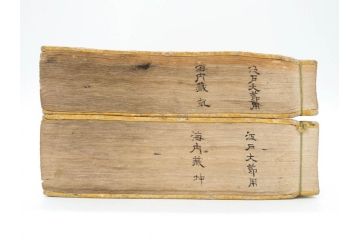 江戸大節用
海内蔵 乾
江戸大節用
海内蔵 坤